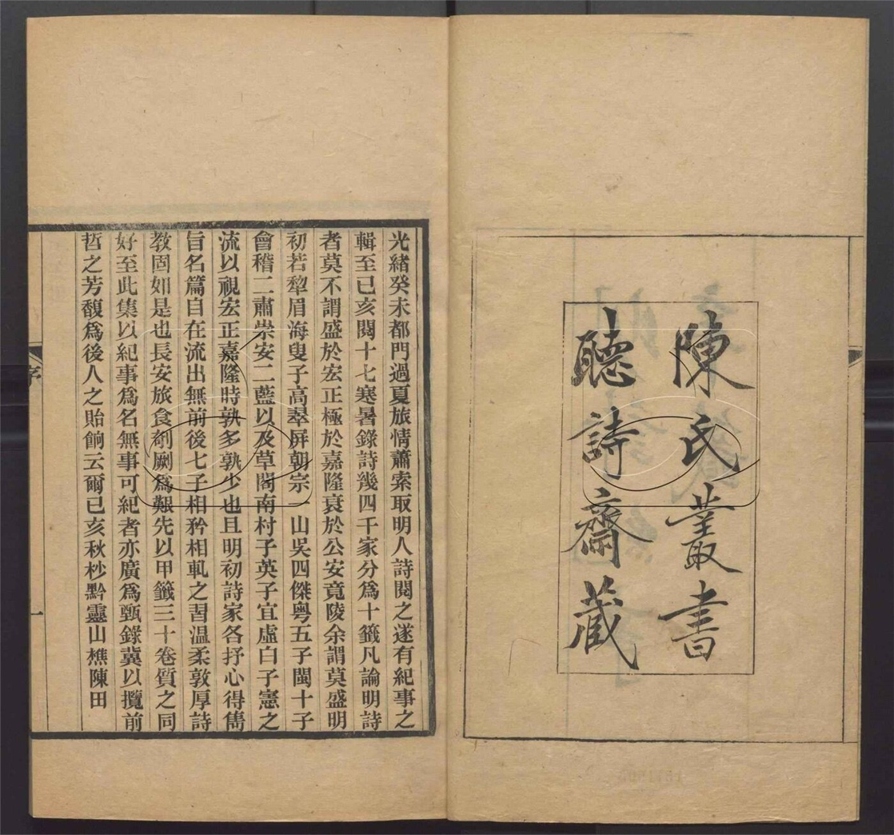 陳氏叢書
聽詩齋藏
光緒癸未都門過夏旅情蕭索取明人詩閱之遂有紀事之
輯至已亥閱十七寒暑錄詩幾四千家分為十籤凡論明詩
者莫不謂盛於宏正極於嘉隆衰於公安竟陵余謂莫盛明
初若犂眉海叟子高翠屏朝宗一山吳四傑粵五子閩十子
會稽二肅崇安二藍以及草閣南村子英子宜虛白子憲之
流以視宏正嘉隆時孰多孰少也且明初詩家各抒心得雋
旨名篇自在流出無前後七子相矜相軋之習溫柔敦厚詩
教固如是也長安旅食剞劂爲艱先以甲籤三十卷質之同
好至此集以紀事爲名無事可紀者亦廣爲甄錄冀以攬前
哲之芳馥爲後人之貽餉云爾已亥秋杪黔靈山樵陳田
序
一